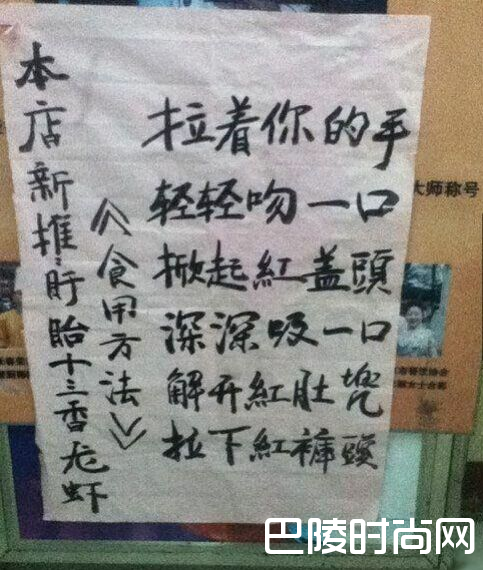 本店新推:盱眙十三香尨虾
《食用方法》
拉着你的手
轻轻吻一口
掀起紅蓋頭
深深吸一口
解开紅肚兜
拉下紅褲頭
大师称号
巴陵时尚网